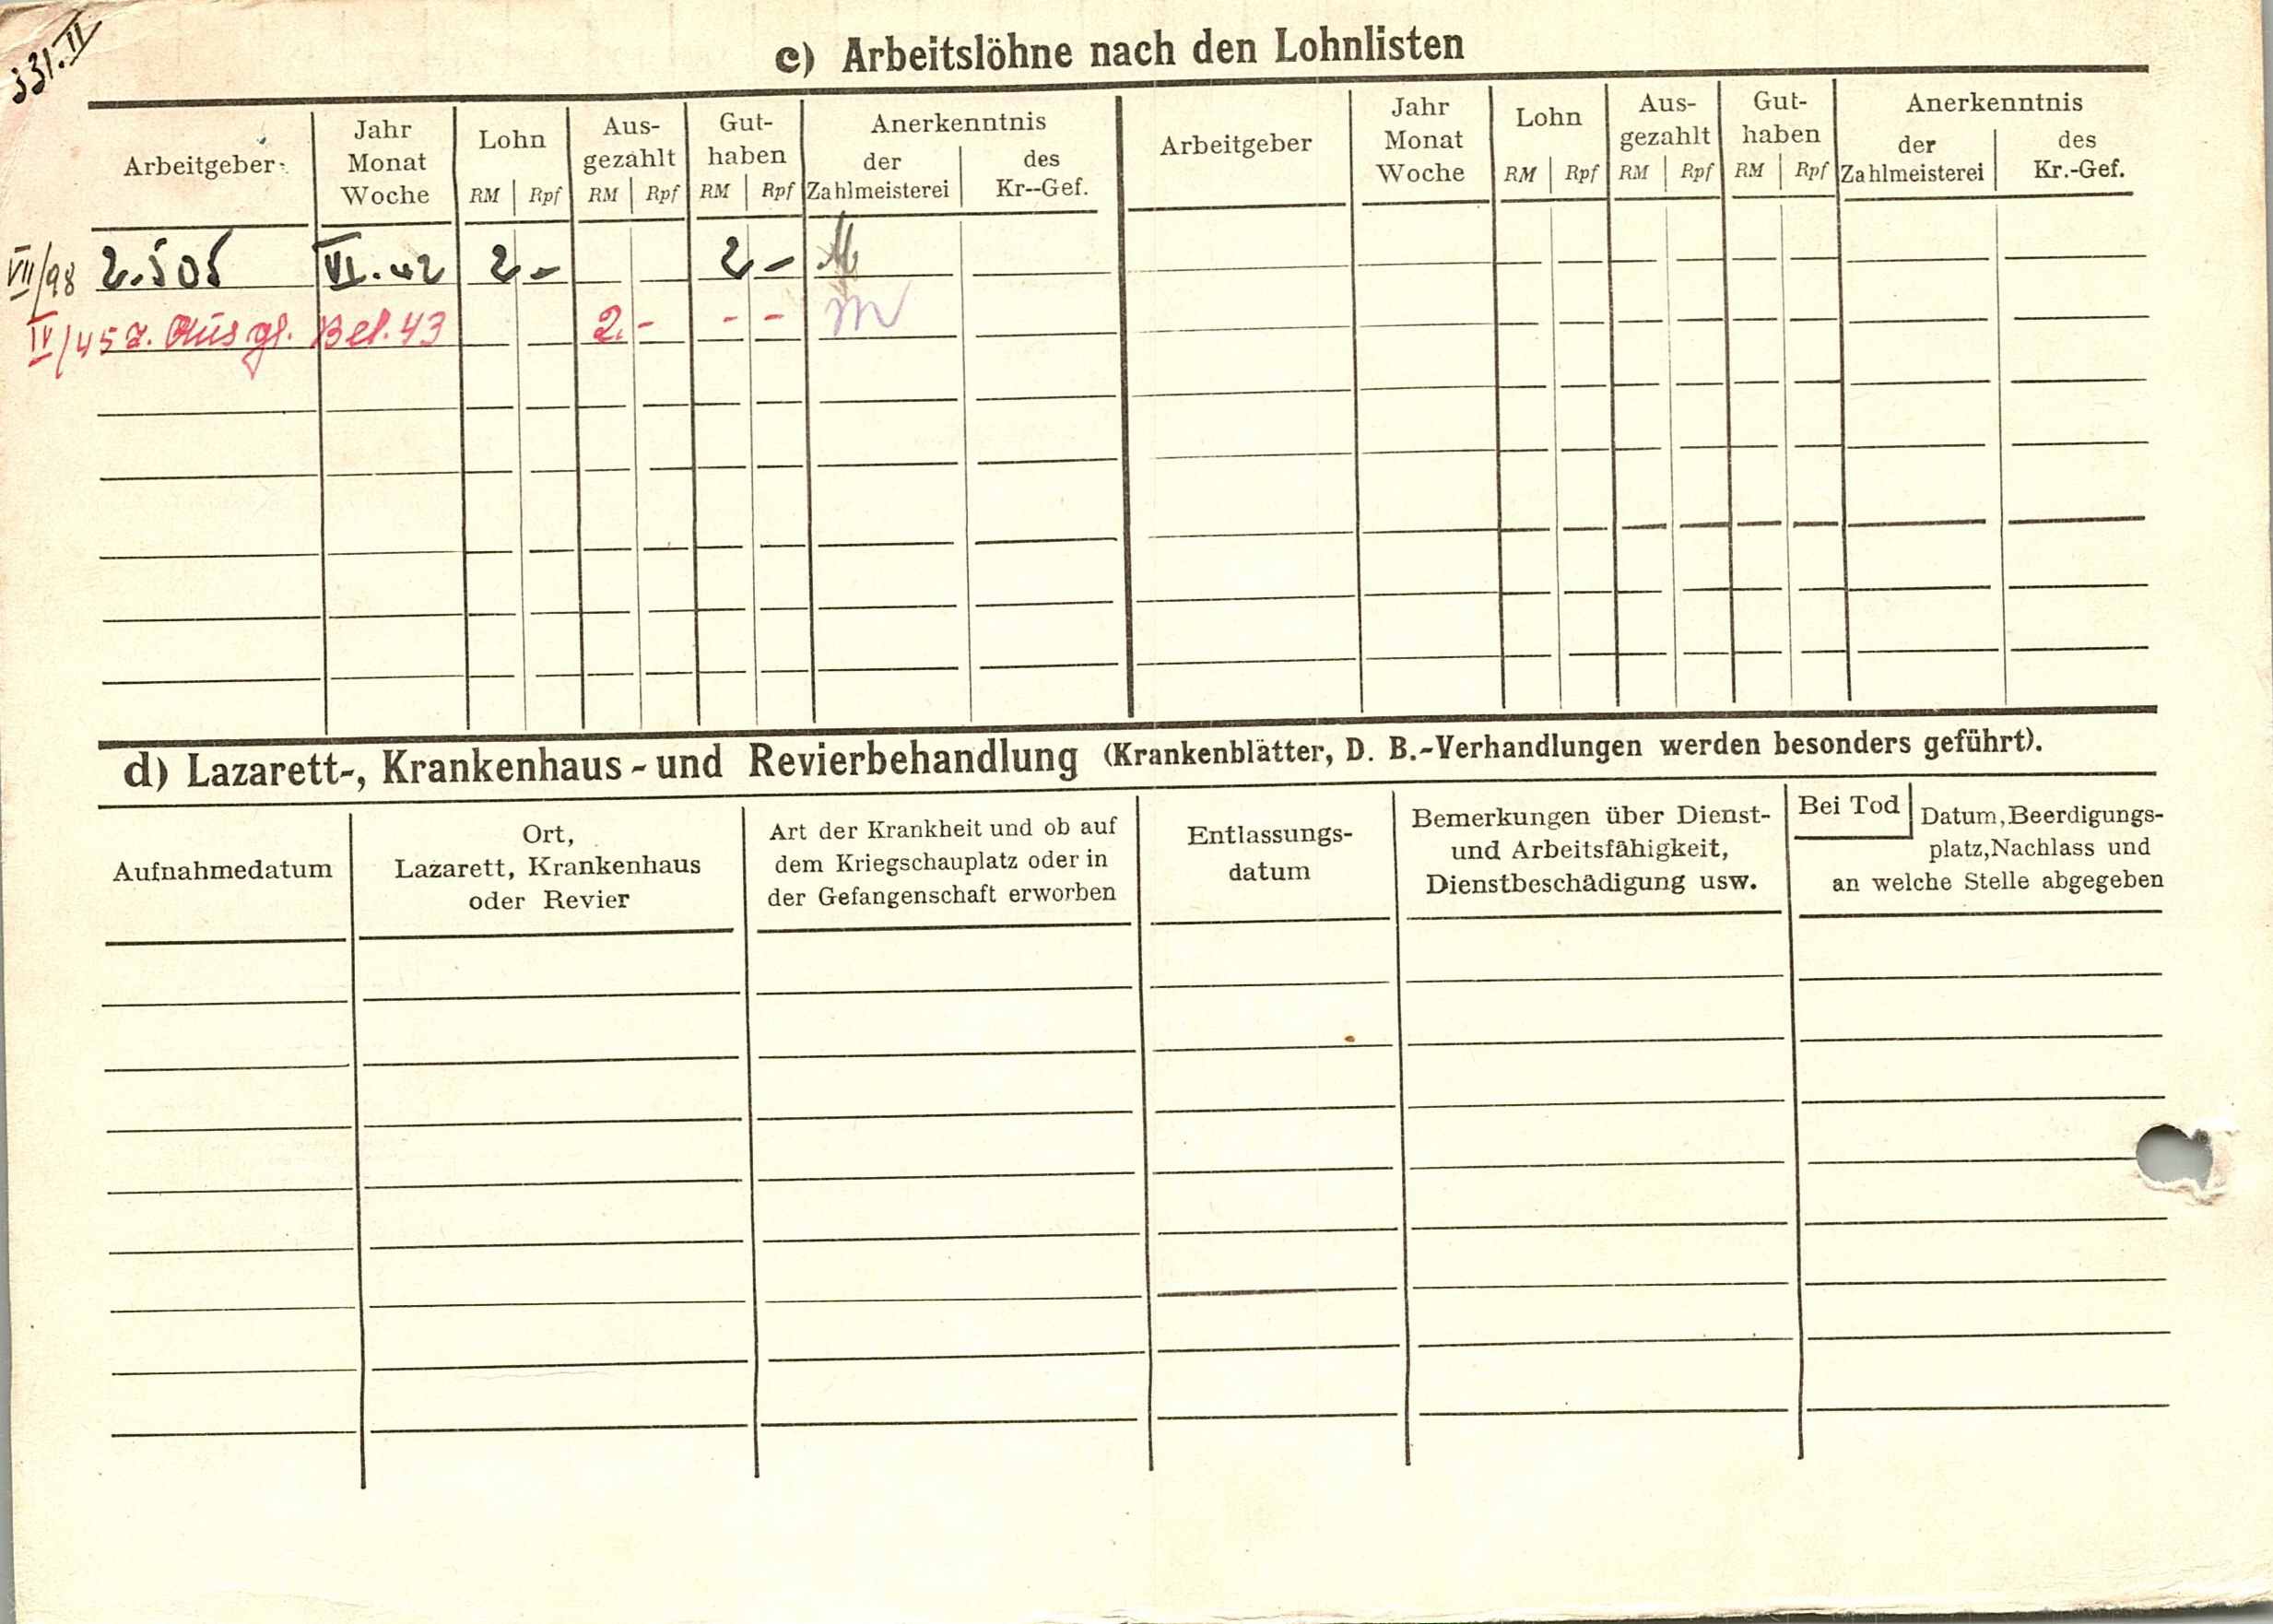 331.II
c) Arbeitslöhne nach den Lohnlisten
Arbeitgeber Jahr Monat Woche Lohn RM Rpf Aus-gezahlt RM Rpf Gut-haben RM Rpf Anerkenntnis der Zahlmeisterei des Kr--Gef.
Arbeitgeber Jahr Monat Woche Lohn RM Rpf Aus-gezahlt RM Rpf Gut-haben RM Rpf Anerkenntnis der Zahlmeisterei des Kr.-Gef.
VII/98 2.505 VI.42 2 - 2 -
IV/45 z. Ausgl. Bel. 43 2.- - -
d) Lazarett-, Krankenhaus- und Revierbehandlung (Krankenblätter, D. B.-Verhandlungen werden besonders geführt).
Aufnahmedatum
Ort,
Lazarett, Krankenhaus
oder Revier
Art der Krankheit und ob auf
dem Kriegschauplatz oder in
der Gefangenschaft erworben
Entlassungs-
datum
Bemerkungen über Dienst-
und Arbeitsfähigkeit,
Dienstbeschädigung usw.
Bei Tod
Datum,Beerdigungs-
platz,Nachlass und
an welche Stelle abgegeben